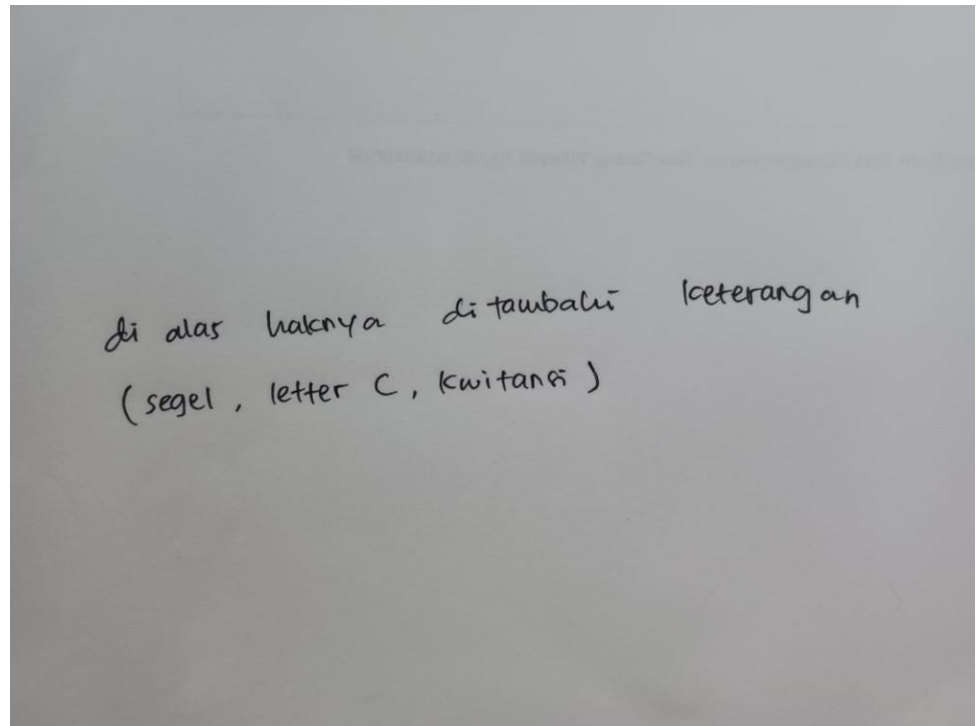 di alas haknya ditambahi keterangan
(segel, letter C, kwitansi)